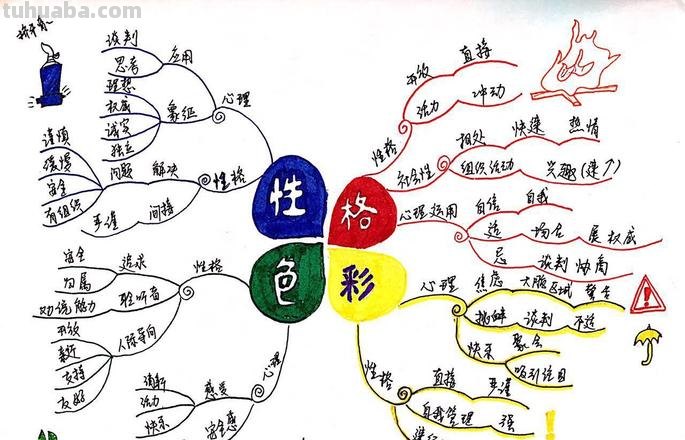 tuhuaba.com
性
格
色
彩
心理
应用
谈判
思考
象征
理想
权威
诚实
独立
性格
解决
问题
间接
严谨
谨慎
缓慢
安全
有组织
性格
直接
开放
活力
冲动
社会性
相处
快速
热情
组织活动
兴趣(建个)
心理运用
自信
自我
适
场合
展权威
忌
谈判
协商
性格
追求
安全
归属
聆听者
劝说能力
人际导向
开放
亲近
支持
友好
心理
感受
清新
活力
快乐
安全感
心理
焦虑
大脑区域
警告
挑衅
谈判
不适
快乐
聚会
吸引注目
性格
直接
严谨
自我管理
强